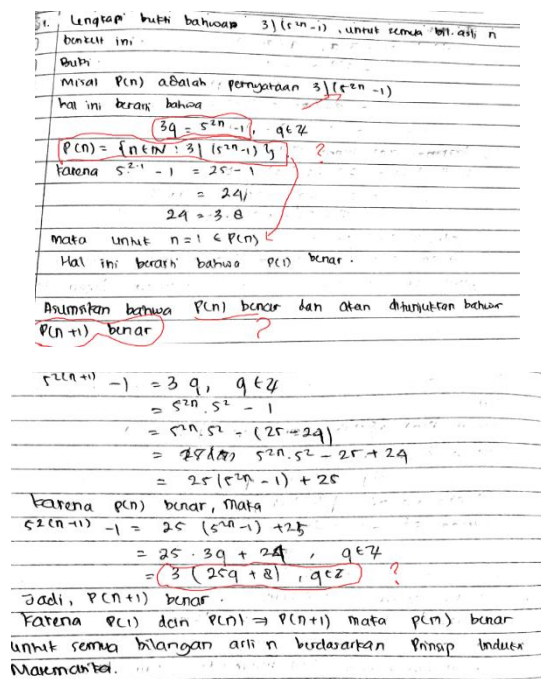 1. Lengkapi bukti bahwa 3|(5²ⁿ-1), untuk semua bil. asli n
berikut ini.
Bukti
Misal P(n) adalah pernyataan 3|(5²ⁿ-1)
hal ini berarti bahwa
3q = 5²ⁿ-1, q∈Z
P(n) = {n∈N : 3|(5²ⁿ-1)} ?
Karena 5²·¹ - 1 = 25 - 1
= 24
24 = 3.8
maka untuk n=1 ∈ P(n)
Hal ini berarti bahwa P(1) benar.
Asumsikan bahwa P(n) benar dan akan ditunjukkan bahwa
P(n+1) benar ?
5²⁽ⁿ⁺¹⁾ - 1 = 3q, q∈Z
= 5²ⁿ.5² - 1
= 5²ⁿ.5² - (25-24)
= 5²ⁿ.5² - 25 + 24
= 25(5²ⁿ - 1) + 25
Karena P(n) benar, maka
5²⁽ⁿ⁺¹⁾ - 1 = 25 (5²ⁿ-1) + 25
= 25 . 3q + 24, q∈Z
= 3 (25q + 8), q∈Z ?
Jadi, P(n+1) benar.
Karena P(1) dan P(n) ⇒ P(n+1) maka P(n) benar
untuk semua bilangan asli n berdasarkan Prinsip Induksi
Matematika.